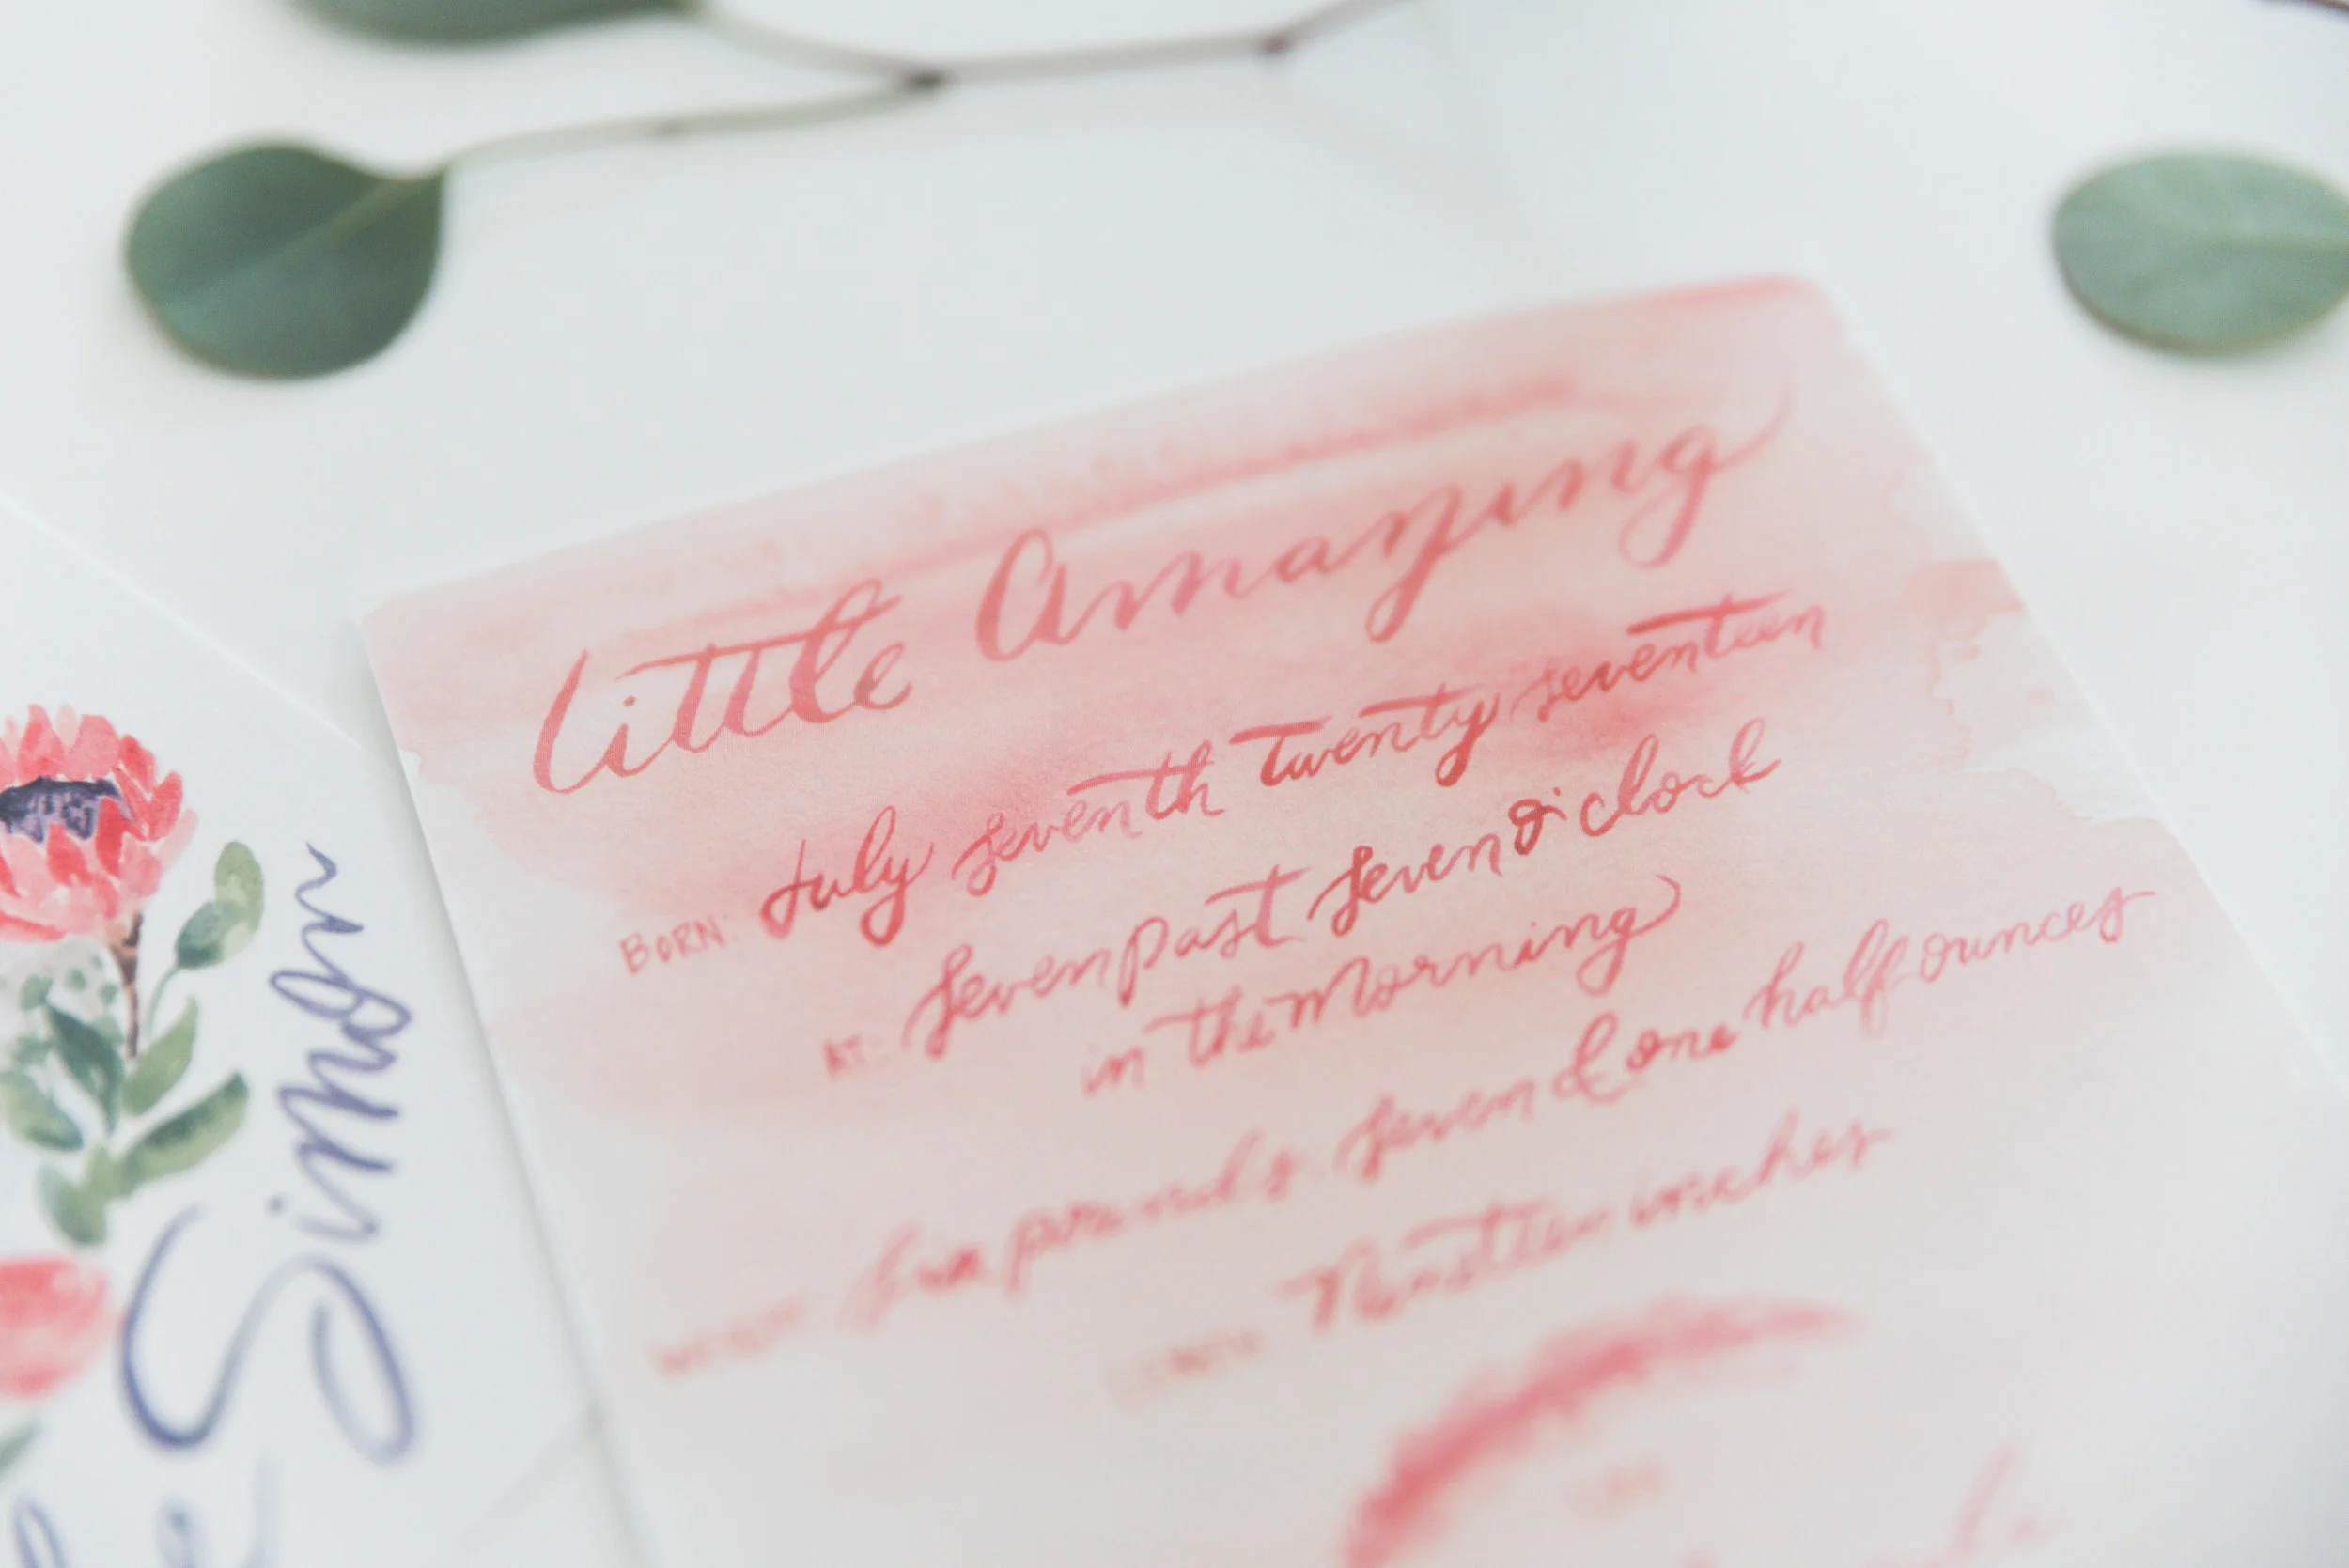 Little Amazing
BORN: July seventh twenty seventeen
AT: seven past seven o'clock
in the morning
WEIGHT: six pounds, seven & one half ounces
LENGTH: inches
Simon